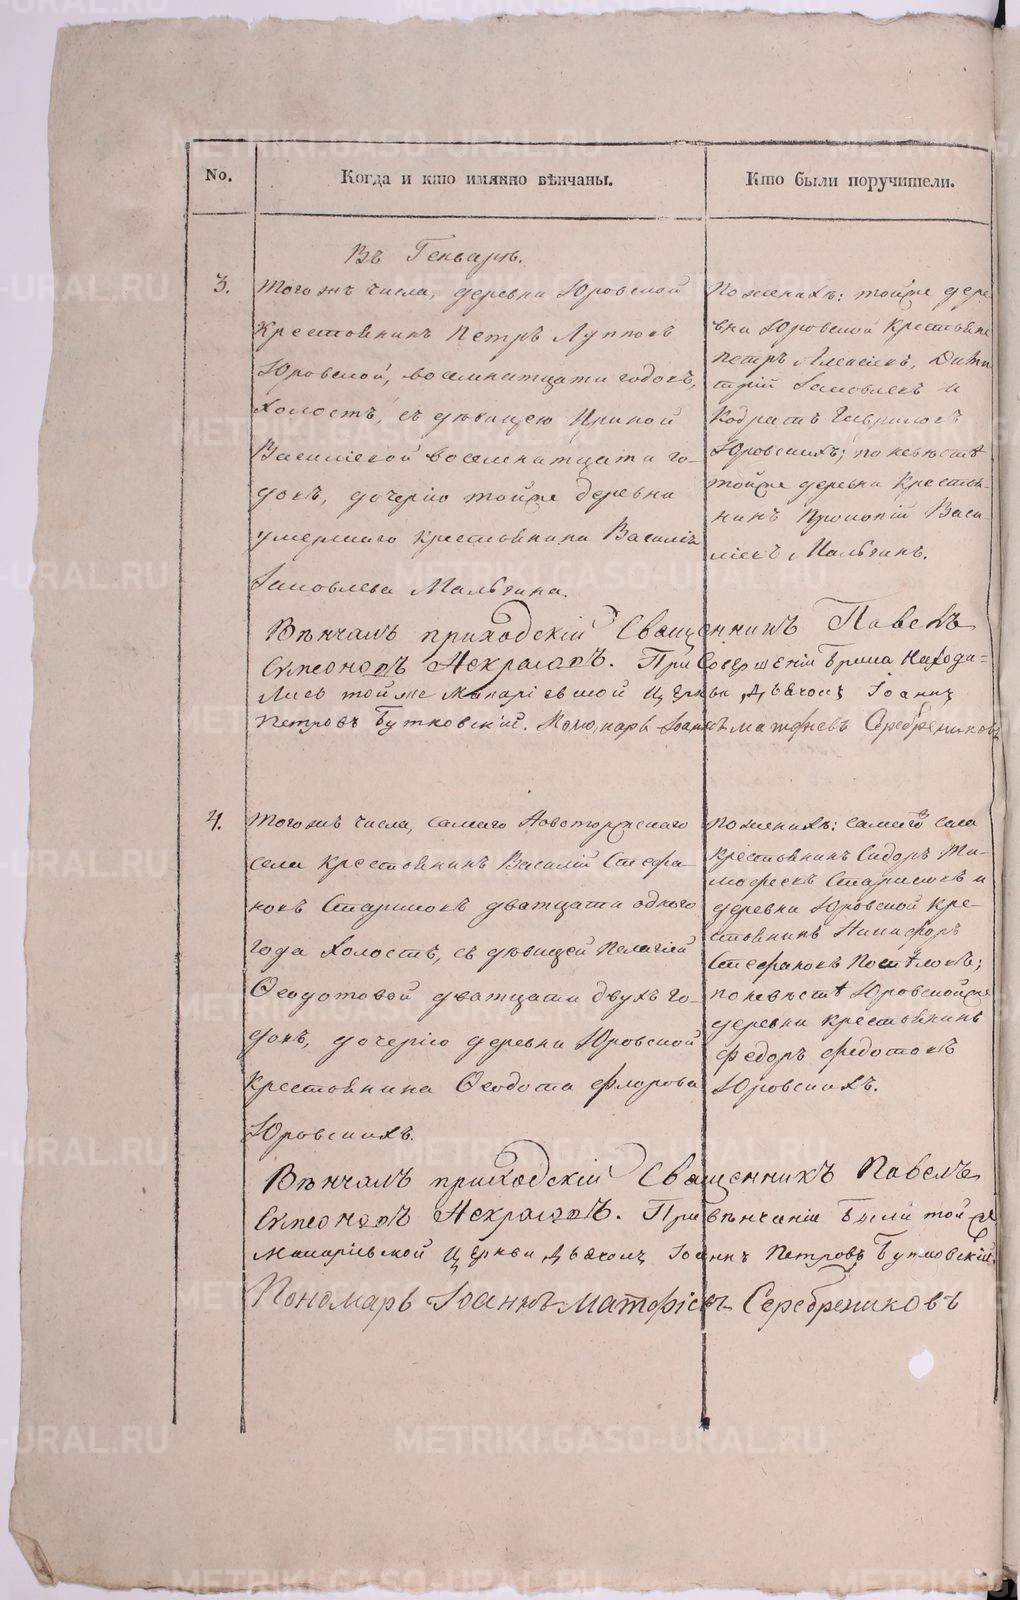 No.
Когда и кто имянно вѣнчаны.
Кто были поручители.
Въ Генварѣ.
3.
Тогожъ числа, деревни Юровской
крестьянинъ Петръ Лупповъ
Юровской, восемнатцати годовъ,
холостъ, съ дѣвицею Ириной
Василіевой восемнатцати го-
довъ, дочерію тойже деревни
умершаго крестьянина Василія
Іаковлева Мальгина.
По женихѣ: тойже дере
вни Юровской крестьяне
Петръ Алексіевъ, Дими
трій Іаковлевъ и
Кодратъ Гавриловъ
Юровскихъ; по невѣстѣ
тойже деревни крестья-
нинъ Прокопій Васи-
ліевъ Мальгинъ.
Вѣнчалъ приходскій Священникъ Павелъ
Симеоновъ Некрасовъ. При Совершеніи брака находи-
лись тойже Макаріевской церкви дьячокъ Іоаннъ
Петровъ Бутковскій. Пономарь Іоаннъ Матфіевъ Серебрениковъ
4.
Тогожъ числа, самаго Новоторжскаго
села крестьянинъ Василій Стефа
новъ Стариковъ дватцати одного
года холостъ, съ дѣвицей Пелагіей
Ѳеодотовой дватцати двухъ го-
довъ, дочерію деревни Юровской
крестьянина Ѳеодота Флорова
Юровскихъ.
По женихѣ: самаго села
крестьянинъ Сидоръ Ти-
мофеевъ Стариковъ и
деревни Юровской кре-
стьянинъ Никифоръ
Стефановъ Поспѣловъ;
по невѣстѣ Юровскойже
деревни крестьянинъ
Федоръ Федотовъ
Юровскихъ.
Вѣнчалъ приходскій Священникъ Павелъ
Симеоновъ Некрасовъ. При вѣнчаніи были тойже
Макаріевской церкви дьячокъ Іоаннъ Петровъ Бутковскій.
Пономарь Іоаннъ Матфіевъ Серебрениковъ
METRIKI.GASO-URAL.RU